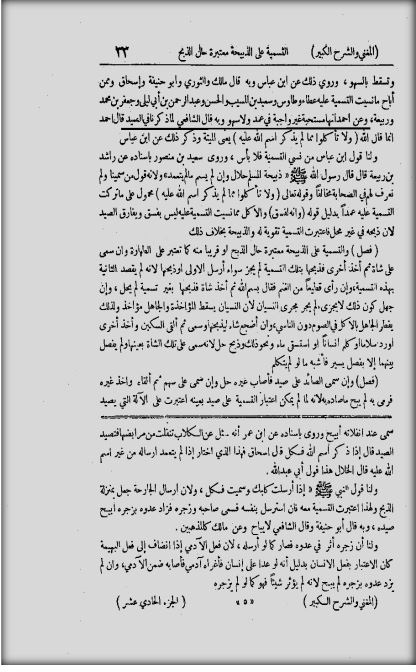 (المغني والشرح الكبير) التسمية على الذبيحة معتبرة حال الذبح ٣٣
وتسقط بالسهو، وروي ذلك عن ابن عباس وبه قال مالك والثوري وأبو حنيفة وإسحاق وممن
أباح ما نسيت التسمية عليه عطاء وطاوس وسعيد بن المسيب والحسن وعبد الرحمن بن أبي ليلى وجعفر بن محمد
وربيعة، وعن أحمد أنها مستحبة غير واجبة في عمد ولا سهو وبه قال الشافعي لما ذكرنا في الصيد قال أحمد
انما قال الله (ولا تأكلوا مما لم يذكر اسم الله عليه) يعني الميتة وذكر ذلك عن ابن عباس
ولنا قول ابن عباس من نسي التسمية فلا بأس، وروى سعيد بن منصور باسناده عن راشد
بن ربيعة قال قال رسول الله ﷺ «ذبيحة المسلم حلال وإن لم يسم مالم يتعمد» ولانه قول من سمينا ولم
نعرف لهم في الصحابة مخالفاً وقوله تعالى (ولا تأكلوا مما لم يذكر اسم الله عليه) محمول على ما تركت
التسمية عليه عمداً بدليل قوله (وانه لفسق) والأكل مما نسيت التسمية عليه ليس بفسق ويفارق الصيد
لان ذبحه في غير محل فاعتبرت التسمية تقوية له والذبيحة بخلاف ذلك
(فصل) والتسمية على الذبيحة معتبرة حال الذبح أو قريباً منه كما تعتبر على الطهارة وان سمى
على شاة ثم أخذ أخرى فذبحها بتلك التسمية لم يجز سواء أرسل الاولى أو ذبحها لانه لم يقصد الثانية
بهذه التسمية، وإن رأى قطيعاً من الغنم فقال بسم الله ثم أخذ شاة فذبحها بغير تسمية لم يحل، وإن
جهل كون ذلك لا يجزئ، لم يجر مجرى النسيان لان النسيان يسقط المؤاخذة والجاهل مؤاخذ ولذلك
يفطر الجاهل بالأكل في الصوم دون الناسي، وإن أضجع شاة ليذبحها وسمى ثم ألقى السكين وأخذ أخرى
أو رد سلاماً أو كلم انساناً أو استسقى ماء ونحو ذلك وذبح حل لانه سمى على تلك الشاة بعينها ولم يفصل
بينهما إلا بفصل يسير فأشبه ما لو لم يتكلم
(فصل) وإن سمى الصائد على صيد فأصاب غيره حل وإن سمى على سهم ثم ألقاه وأخذ غيره
فرمى به لم يبح ما صاده به لانه لما لم يمكن اعتبار التسمية على صيد بعينه اعتبرت على الآلة التي يصيد
سمى عند انفلاته أبيح وروى باسناده عن ابن عمر أنه سئل عن الكلاب تنفلت من مرابضها فتصيد
الصيد قال إذا ذكر اسم الله فكل قال إسحاق فهذا الذي اختار إذا لم يتعمد ارساله من غير اسم
الله عليه قال الخلال هذا قول أبي عبدالله.
ولنا قول النبي ﷺ «إذا أرسلت كلبك وسميت فكل» ولان إرسال الجارحة جعل بمنزلة
الذبح ولهذا اعتبرت التسمية معه فان استرسل بنفسه فسمى صاحبه وزجره فزاد عدوه بزجره أبيح
صيده، وبه قال أبو حنيفة وقال الشافعي لا يباح وعن مالك كالمذهبين.
ولنا أن زجره أثر في عدوه فصار كما لو أرسله، لان فعل الآدمي إذا انضاف إلى فعل البهيمة
كان الاعتبار بفعل الانسان بدليل أنه لو عدا على إنسان فأغراه آدمي فأصابه ضمن الآدمي، وان لم
يزد عدوه بزجره لم يبح لانه لم يؤثر شيئاً فهو كما لو لم يزجره
(المغني والشرح الكبير) «٥» (الجزء الحادي عشر)